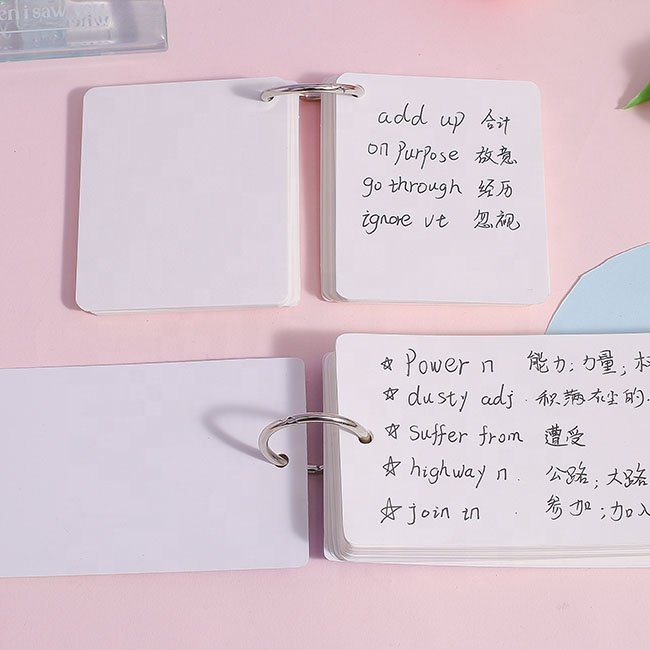 enisaw
add up 合计
on purpose 故意
go through 经历
ignore vt 忽视
☆ Power n 能力;力量;
☆ dusty adj. 积满灰尘的.
☆ Suffer from 遭受
☆ highway n. 公路;大路
☆ join in . 参加;加入